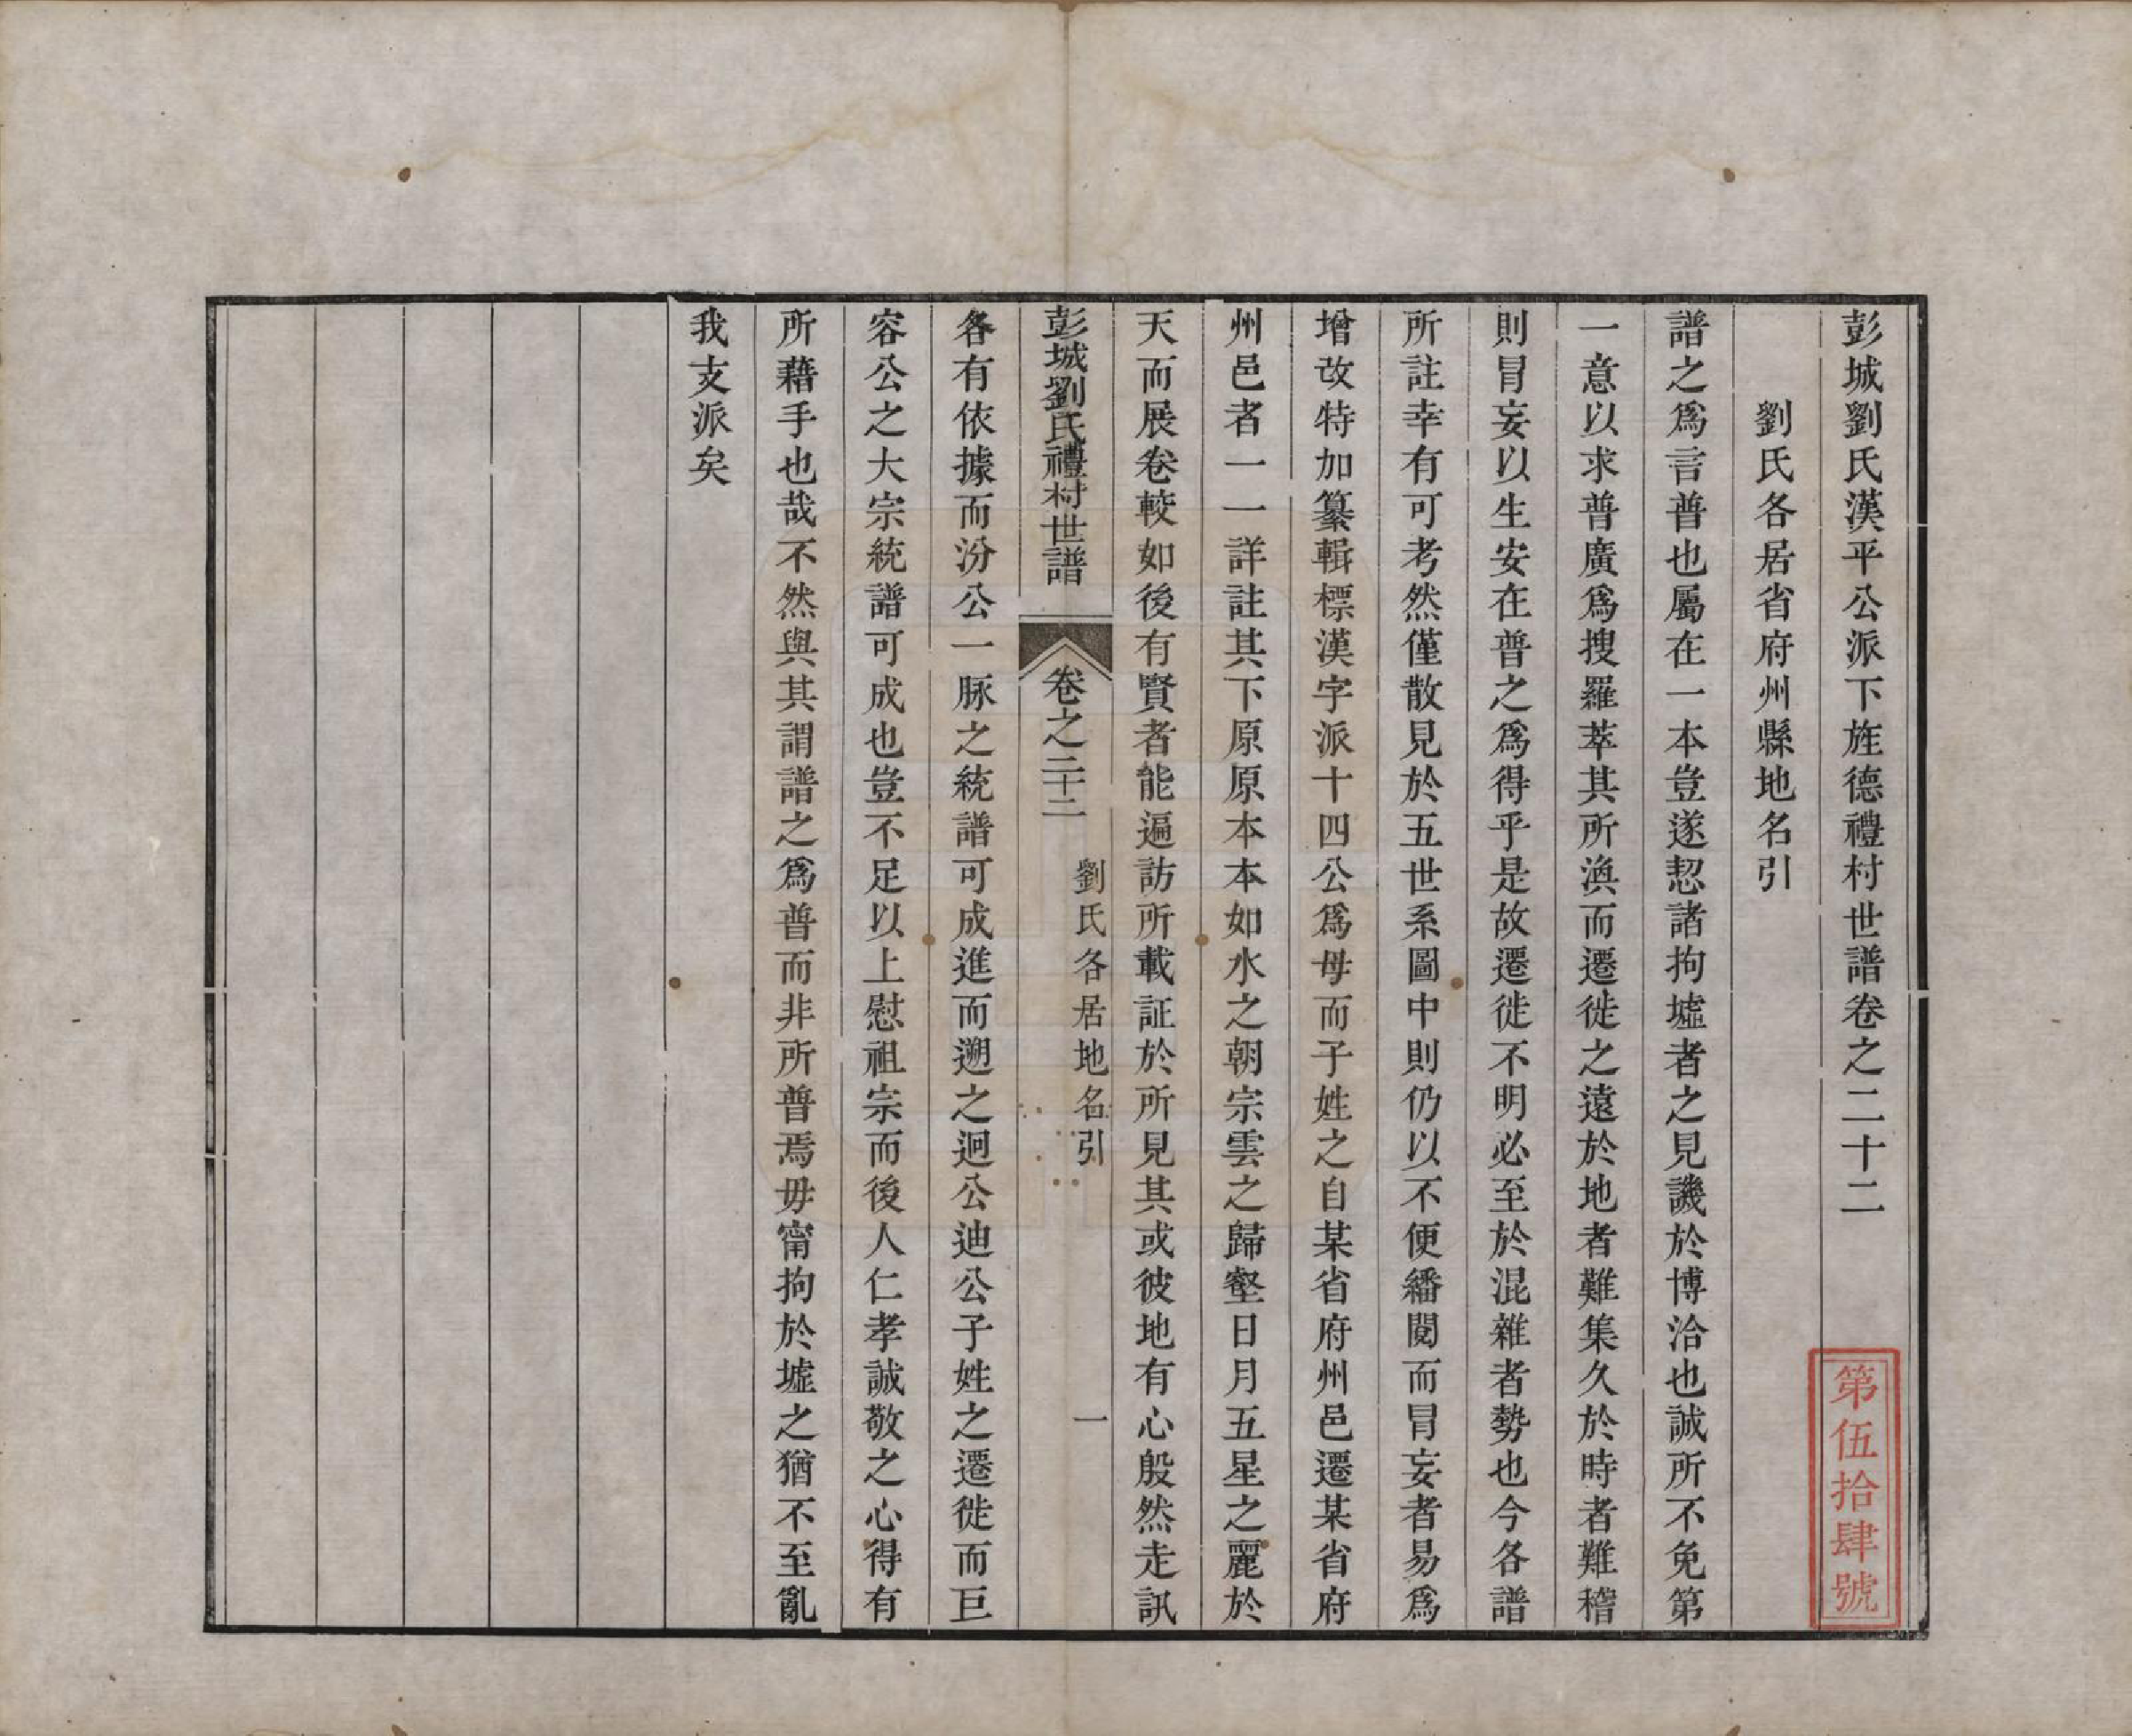 彭城劉氏漢平公派下旌德禮村世譜卷之二十二
劉氏各居省府州縣地名引
譜之爲言普也屬在一本豈遂恝諸拘墟者之見譏於博洽也誠所不免第
一意以求普廣爲搜羅萃其所渙而遷徙之遠於地者難集久於時者難稽
則冒妄以生安在普之爲得乎是故遷徙不明必至於混雜者勢也今各譜
所註幸有可考然僅散見於五世系圖中則仍以不便繙閱而冒妄者易爲
增改特加纂輯標漢字派十四公爲母而子姓之自某省府州邑遷某省府
州邑者一一詳註其下原原本本如水之朝宗雲之歸壑日月五星之麗於
天而展卷較如後有賢者能遍訪所載証於所見其或彼地有心殷然走訊
彭城劉氏禮村世譜 卷之二十二 劉氏各居地名引 一
各有依據而汾公一脉之統譜可成進而遡之迥公迪公子姓之遷徙而巨
容公之大宗統譜可成也豈不足以上慰祖宗而後人仁孝誠敬之心得有
所藉手也哉不然與其謂譜之爲普而非所普焉毋甯拘於墟之猶不至亂
我支派矣
第伍拾肆號